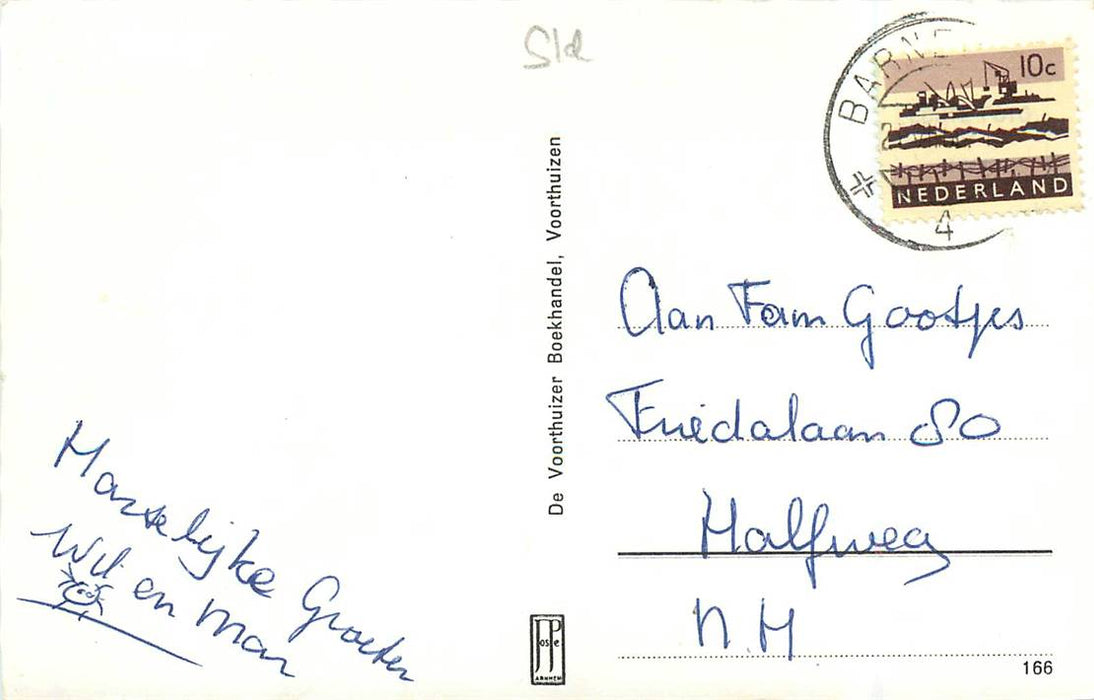 Sld
BARNE
10c
NEDERLAND
4
De Voorthuizer Boekhandel, Voorthuizen
Aan Fam Gootjes
Friedalaan 80
Halfweg
N.H
Hartelijke Groeten
Wil en Mar
JosPe
ARNHEM
166